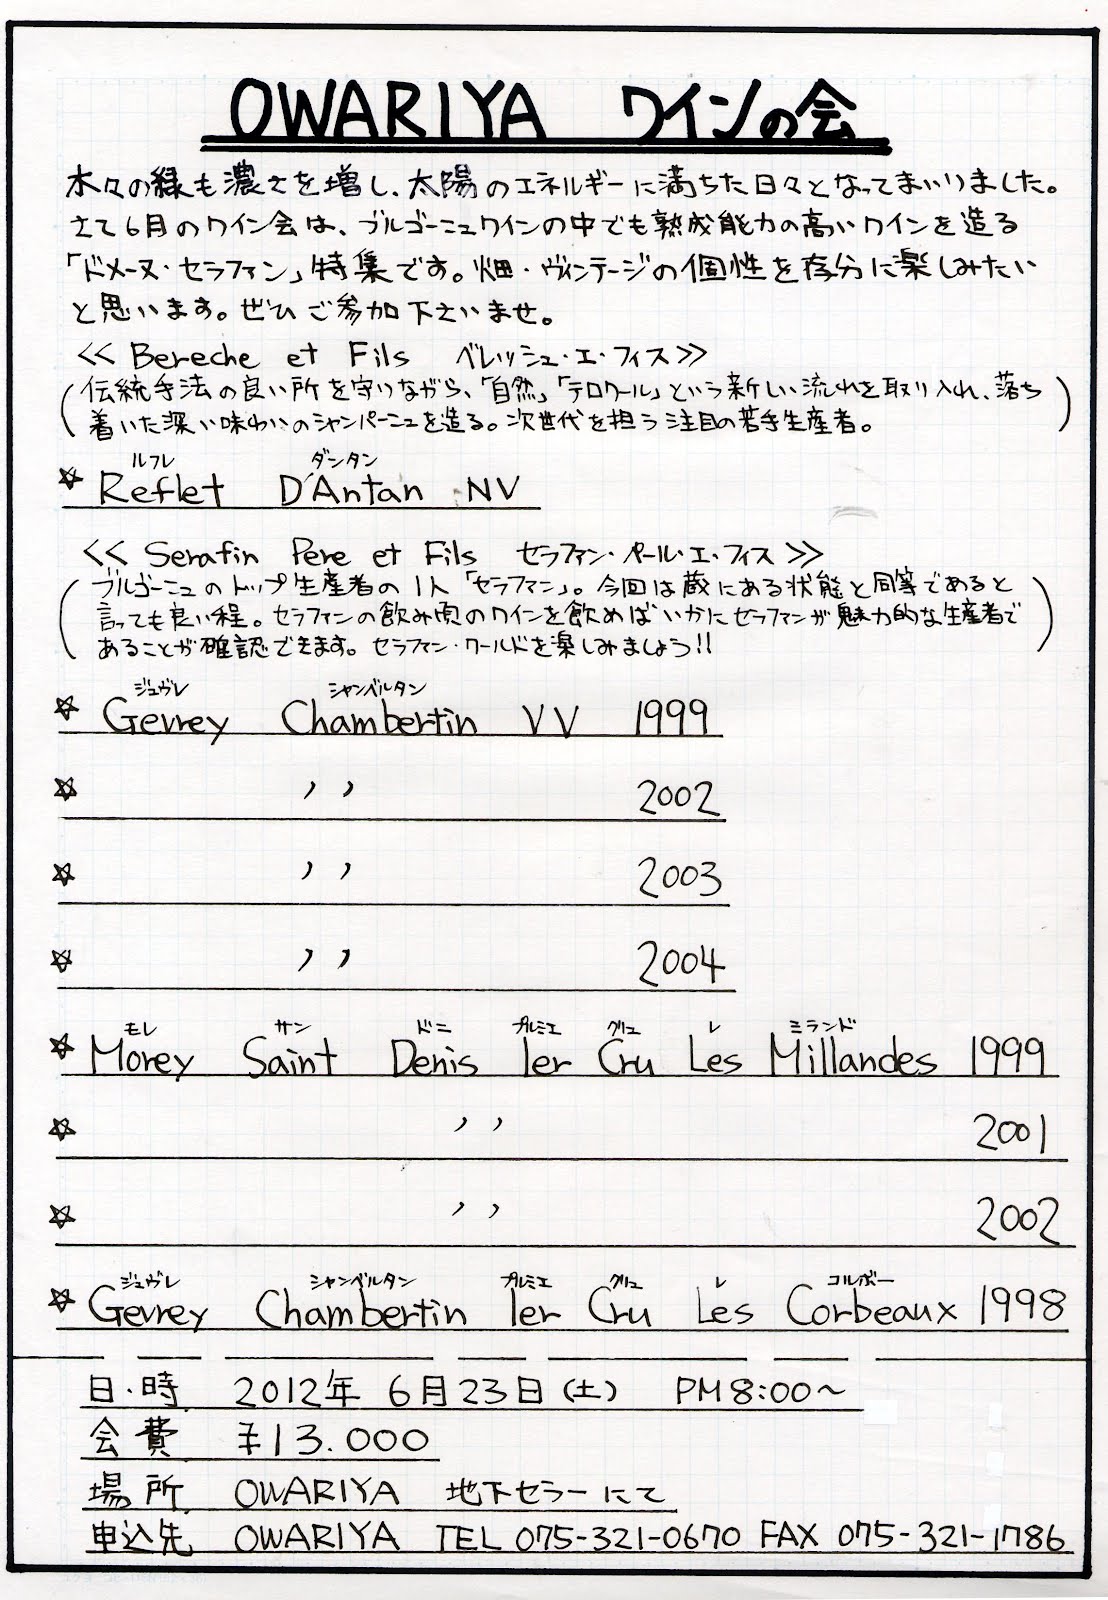 OWARIYA ワインの会
木々の緑も濃さを増し、太陽のエネルギーに満ちた日々となってまいりました。
さて6月のワイン会は、ブルゴーニュワインの中でも熟成能力の高いワインを造る
「ドメーヌ・セラファン」特集です。畑・ヴィンテージの個性を存分に楽しみたい
と思います。ぜひご参加下さいませ。
<< Bereche et Fils ベレッシュ・エ・フィス >>
(伝統手法の良い所を守りながら、「自然」「テロワール」という新しい流れを取り入れ、落ち
着いた深い味わいのシャンパーニュを造る。次世代を担う注目の若手生産者。)
ルフレ ダンタン
☆ Reflet D'Antan NV
<< Serafin Pere et Fils セラファン・ペール・エ・フィス >>
(ブルゴーニュのトップ生産者の1人「セラファン」。今回は蔵にある状態と同等であると
言っても良い程。セラファンの飲み頃のワインを飲めばいかにセラファンが魅力的な生産者で
あることが確認できます。セラファン・ワールドを楽しみましょう!!)
ジュヴレ シャンベルタン
☆ Gevrey Chambertin VV 1999
☆ 〃 2002
☆ 〃 2003
☆ 〃 2004
モレ サン ドニ プルミエ クリュ レ ミランド
☆ Morey Saint Denis 1er Cru Les Millandes 1999
☆ 〃 2001
☆ 〃 2002
ジュヴレ シャンベルタン プルミエ クリュ レ コルボー
☆ Gevrey Chambertin 1er Cru Les Corbeaux 1998
日・時 2012年 6月23日(土) PM8:00〜
会費 ¥13.000
場所 OWARIYA 地下セラーにて
申込先 OWARIYA TEL 075-321-0670 FAX 075-321-1786